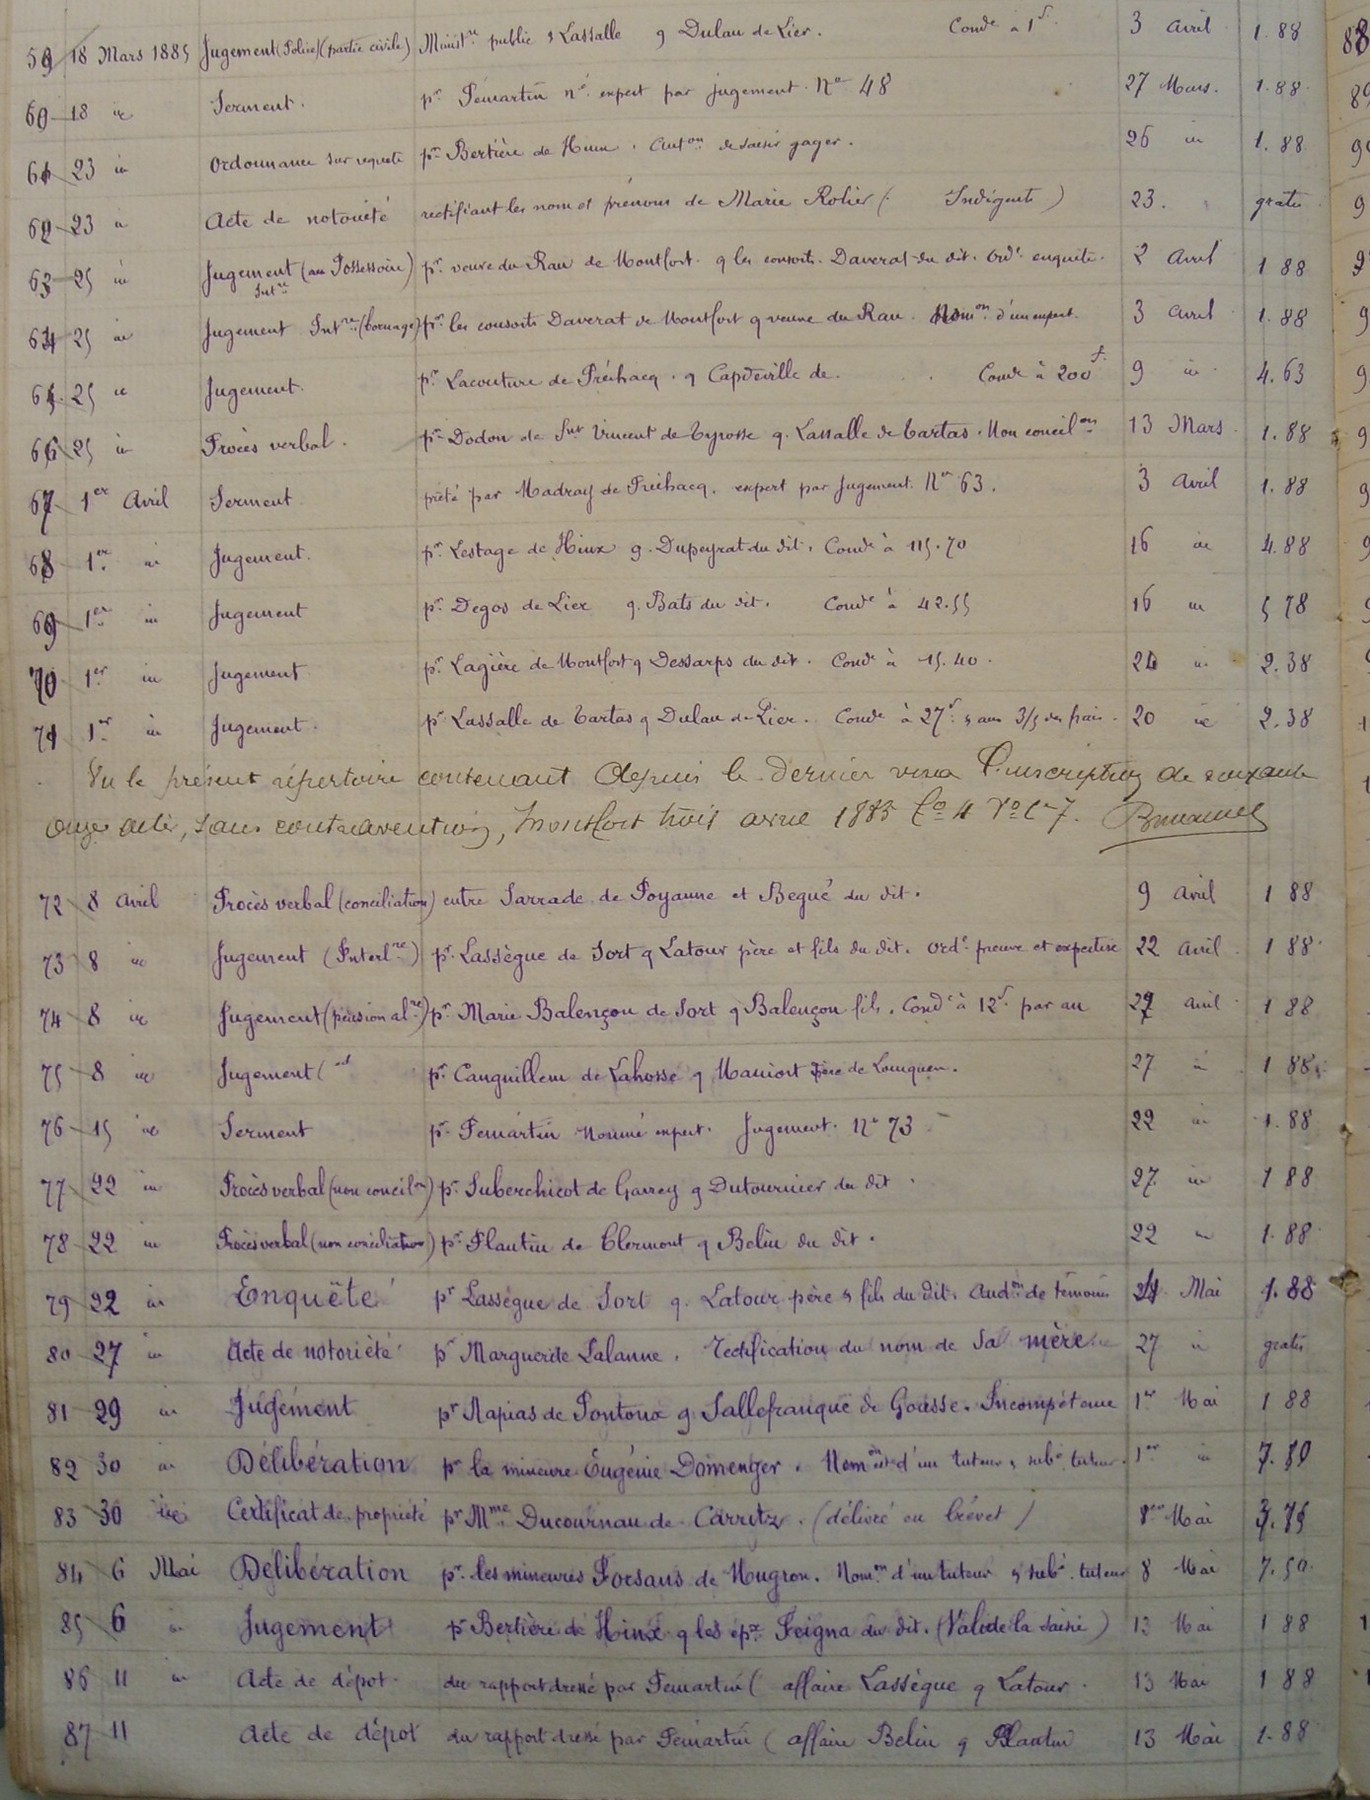 59 18 Mars 1885 Jugement (Police) (partie civile) Ministre public & Lassalle q Dulau de Lier. Conde à 1f. 3 avril 1.88
60 18 ie Serment. pr Temartin né expert par jugement. No 48 27 Mars. 1.88
61 23 in Ordonnance sur requete pr Bertière de Hinx. auton de saisir gager. 26 in 1.88
62 23 in Acte de notoriété rectifiant les nom et prénoms de Marie Rolier (Indigente) 23. gratis
63 25 in Jugement (au Possessoire) Intre pr veuve du Rau de Montfort q les consorts Daverat du dit. Orde enquête. 2 avril 1 88
64 25 in Jugement Intre (bornage) pr les consorts Daverat de Montfort q veuve du Rau. Nomon d'un expert. 3 avril 1.88
65 25 ie Jugement. pr Lacouture de Préchacq. q Capdeville de. Conde à 200f. 9 in 4.63
66 25 in Procès verbal. pr Dodon de Snt Vincent de Tyrosse q. Lassalle de Tartas. Non concilon 13 Mars 1.88
67 1er Avril Serment prété par Madray de Préchacq. expert par Jugement No 63. 3 avril 1.88
68 1er in Jugement. pr Lestage de Hinx q. Dupeyrat du dit. Conde à 115.70 16 in 4.88
69 1er in Jugement pr Degos de Lier q. Bats du dit. Conde à 42.55 16 in 5 78
70 1er in Jugement pr Lagière de Montfort q Dessarps du dit. Conde à 15.40. 24 in 2.38
71 1er in Jugement. pr Lassalle de Tartas q Dulau de Lier. Conde à 27f. & aux 3/5 des frais. 20 ie 2.38
Vu le présent répertoire contenant depuis le dernier visa l'inscription de soixante
onze actes, sans contravention, Montfort trois avril 1885 fo 4 Vo Ce 7.
72 8 avril Procès verbal (conciliation) entre Sarrade de Poyanne et Begué du dit. 9 avril 1 88
73 8 in Jugement (Interlre) pr Lassègue de Sort q Latour père et fils du dit. Orde preuve et expertise 22 avril 1 88
74 8 in Jugement (pension alre) pr Marie Balençon de Sort q Balençon fils. Conde à 12f. par an 27 avril 1 88
75 8 in Jugement (id pr Canguillem de Lahosse q Maniort père de Lourquen. 27 in 1 88
76 15 in Serment pr Temartin nommé expert. Jugement. No 73 22 in 1.88
77 22 in Procès verbal (non concilon) pr Suberchicot de Garrey q Dutournier du dit. 27 in 1 88
78 22 in Procès verbal (non conciliation) pr Plantin de Clermont q Belin du dit. 22 in 1.88
79 22 in Enquête pr Lassègue de Sort q. Latour père & fils du dit. Audon de témoins 24 Mai 1.88
80 27 in Acte de notoriété pr Marguerite Lalanne. Rectification du nom de sa mère 27 in gratis
81 29 in Jugement pr Rapias de Pontonx q Sallefranque de Gousse. Incompétence 1er Mai 1 88
82 30 in Délibération pr la mineure Eugénie Domenger. Nomon d'un tuteur & subé tuteur. 1er in 7.50
83 30 in Certificat de propriété pr Mme Ducournau de Carritz. (délivré en brévet) 8 Mai 3.75
84 6 Mai Délibération pr les mineures Forsans de Mugron. Nomon d'un tuteur & subé. tuteur 8 Mai 7.50
85 6 in Jugement pr Bertière de Hinx q les épx Feigna du dit. (Valide la saisie) 13 Mai 1 88
86 11 in Acte de dépot du rapport dressé par Temartin (affaire Lassègue q Latour. 13 Mai 1 88
87 11 Acte de dépot du rapport dressé par Temartin (affaire Belin q Plantin 13 Mai 1.88